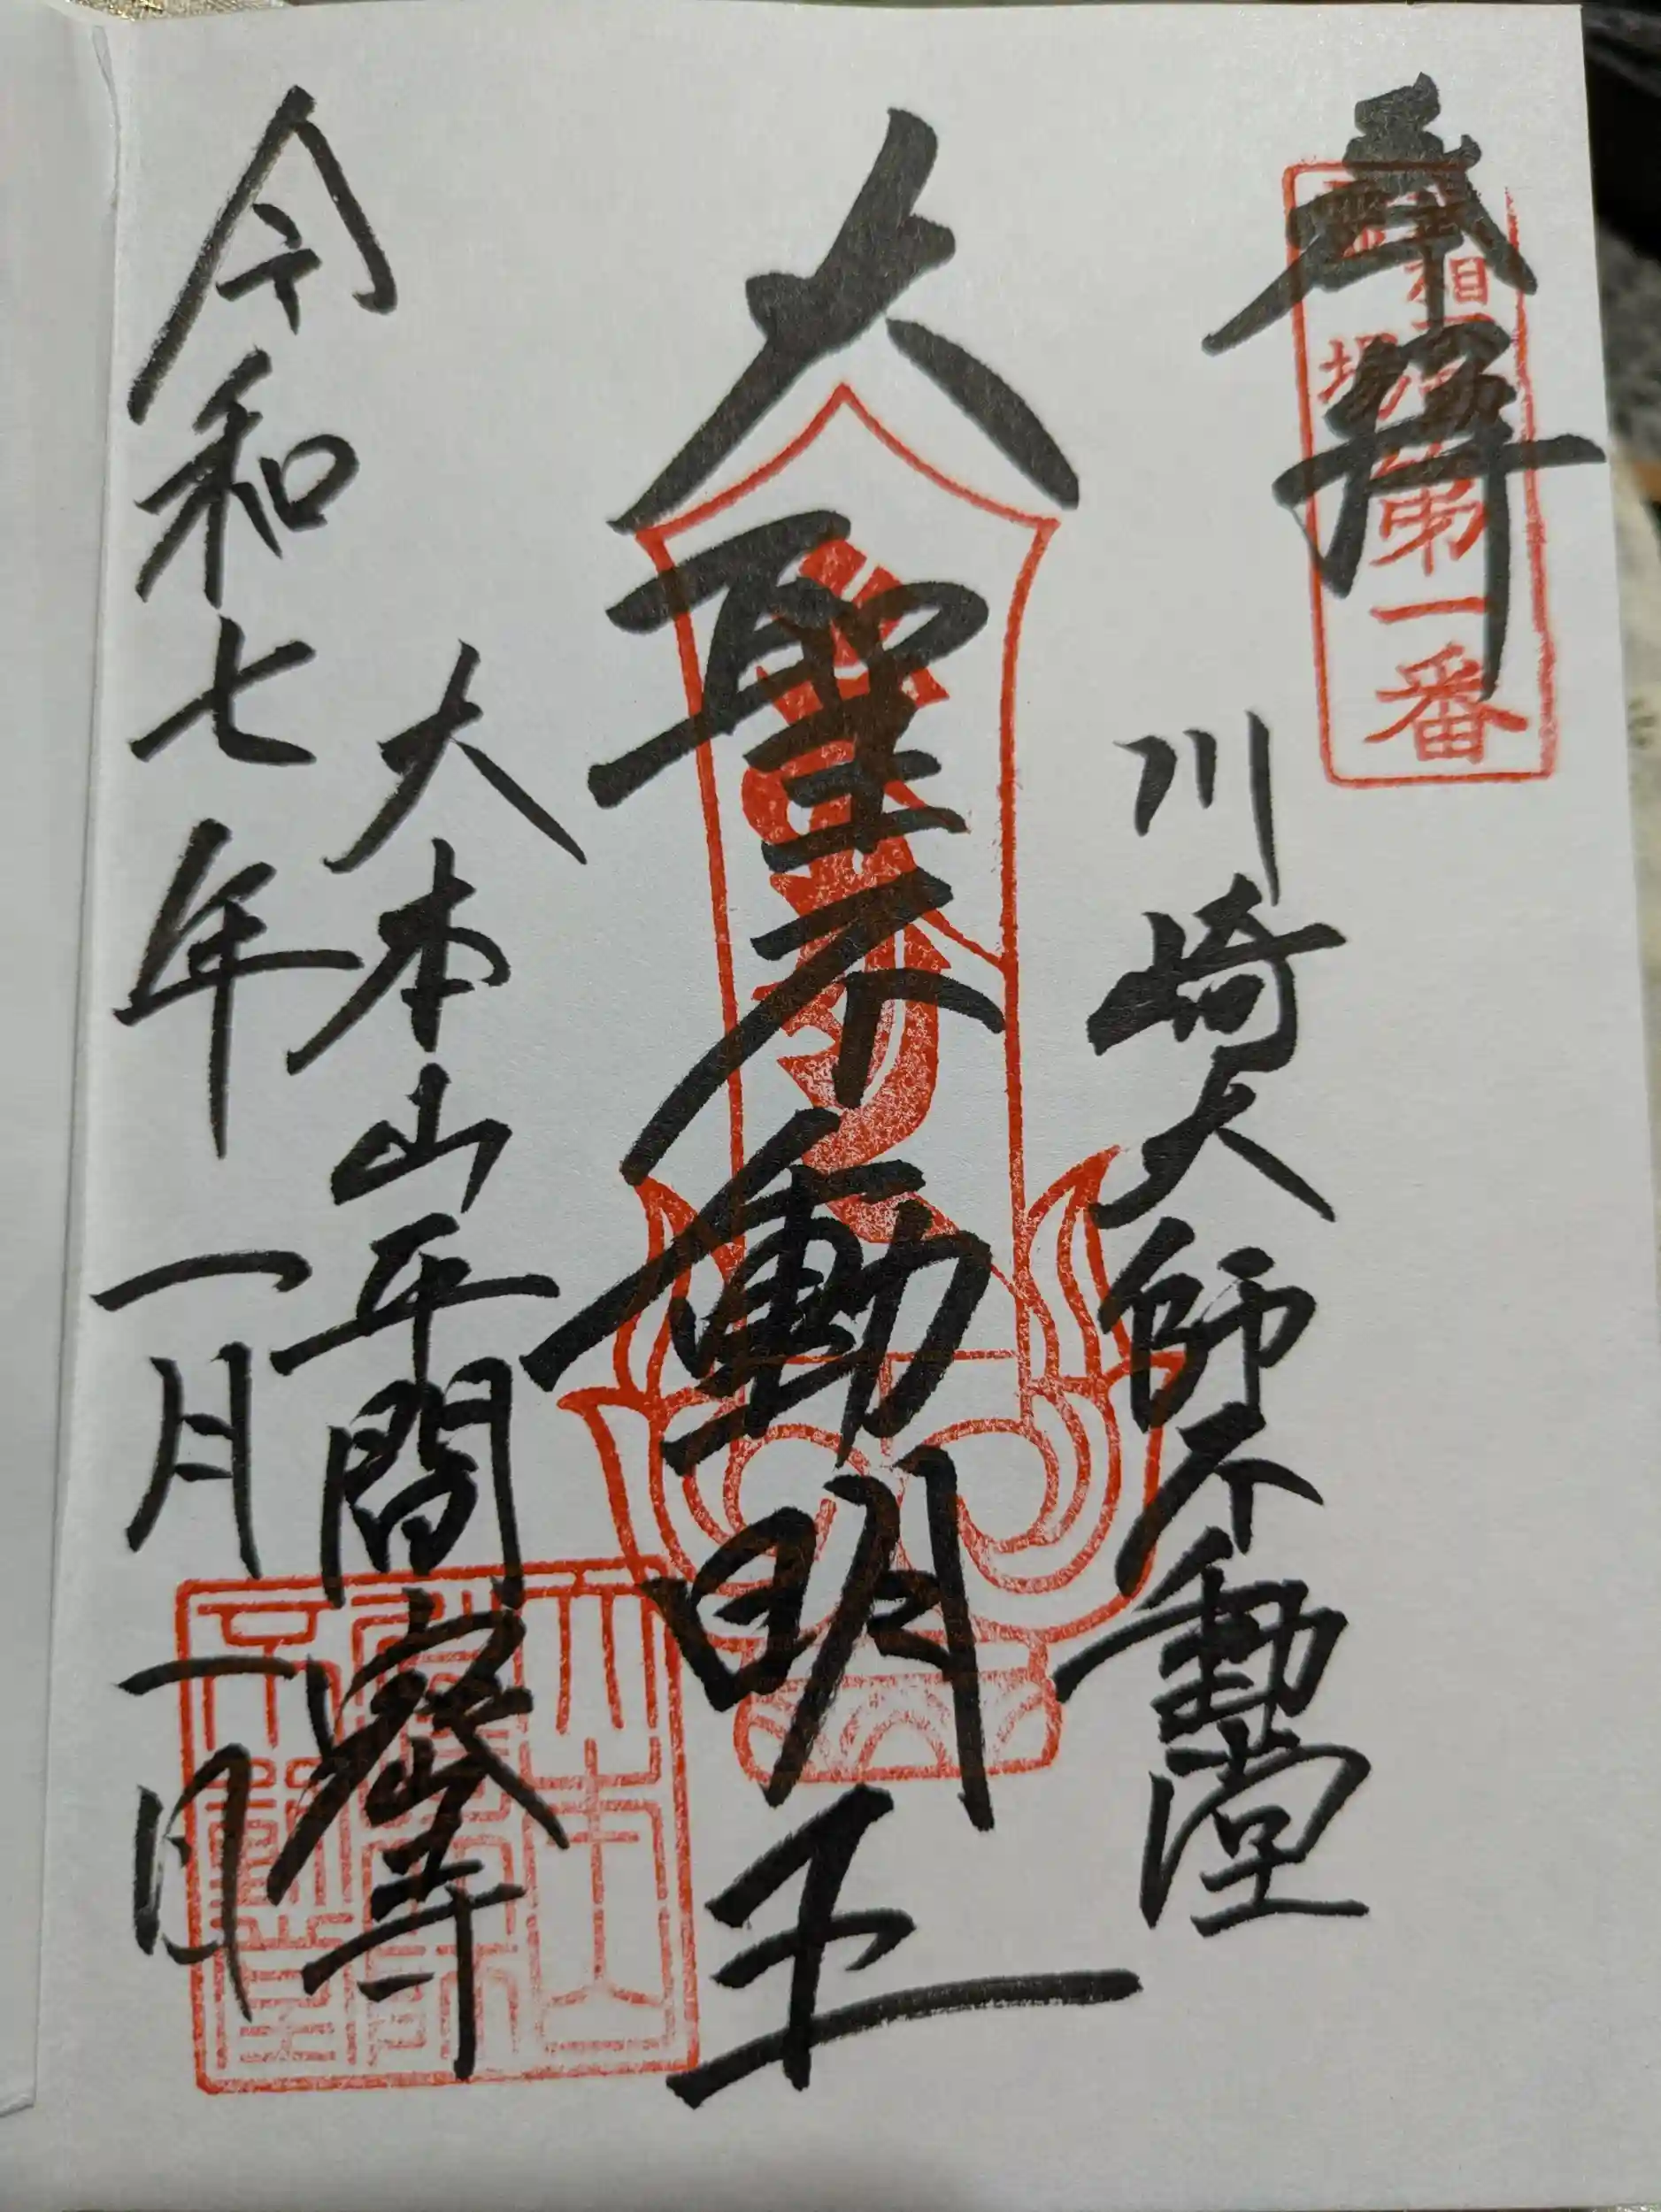 奉拝
武相霊場第一番
川崎大師不動堂
大聖不動明王
大本山平間寺
令和七年一月一日